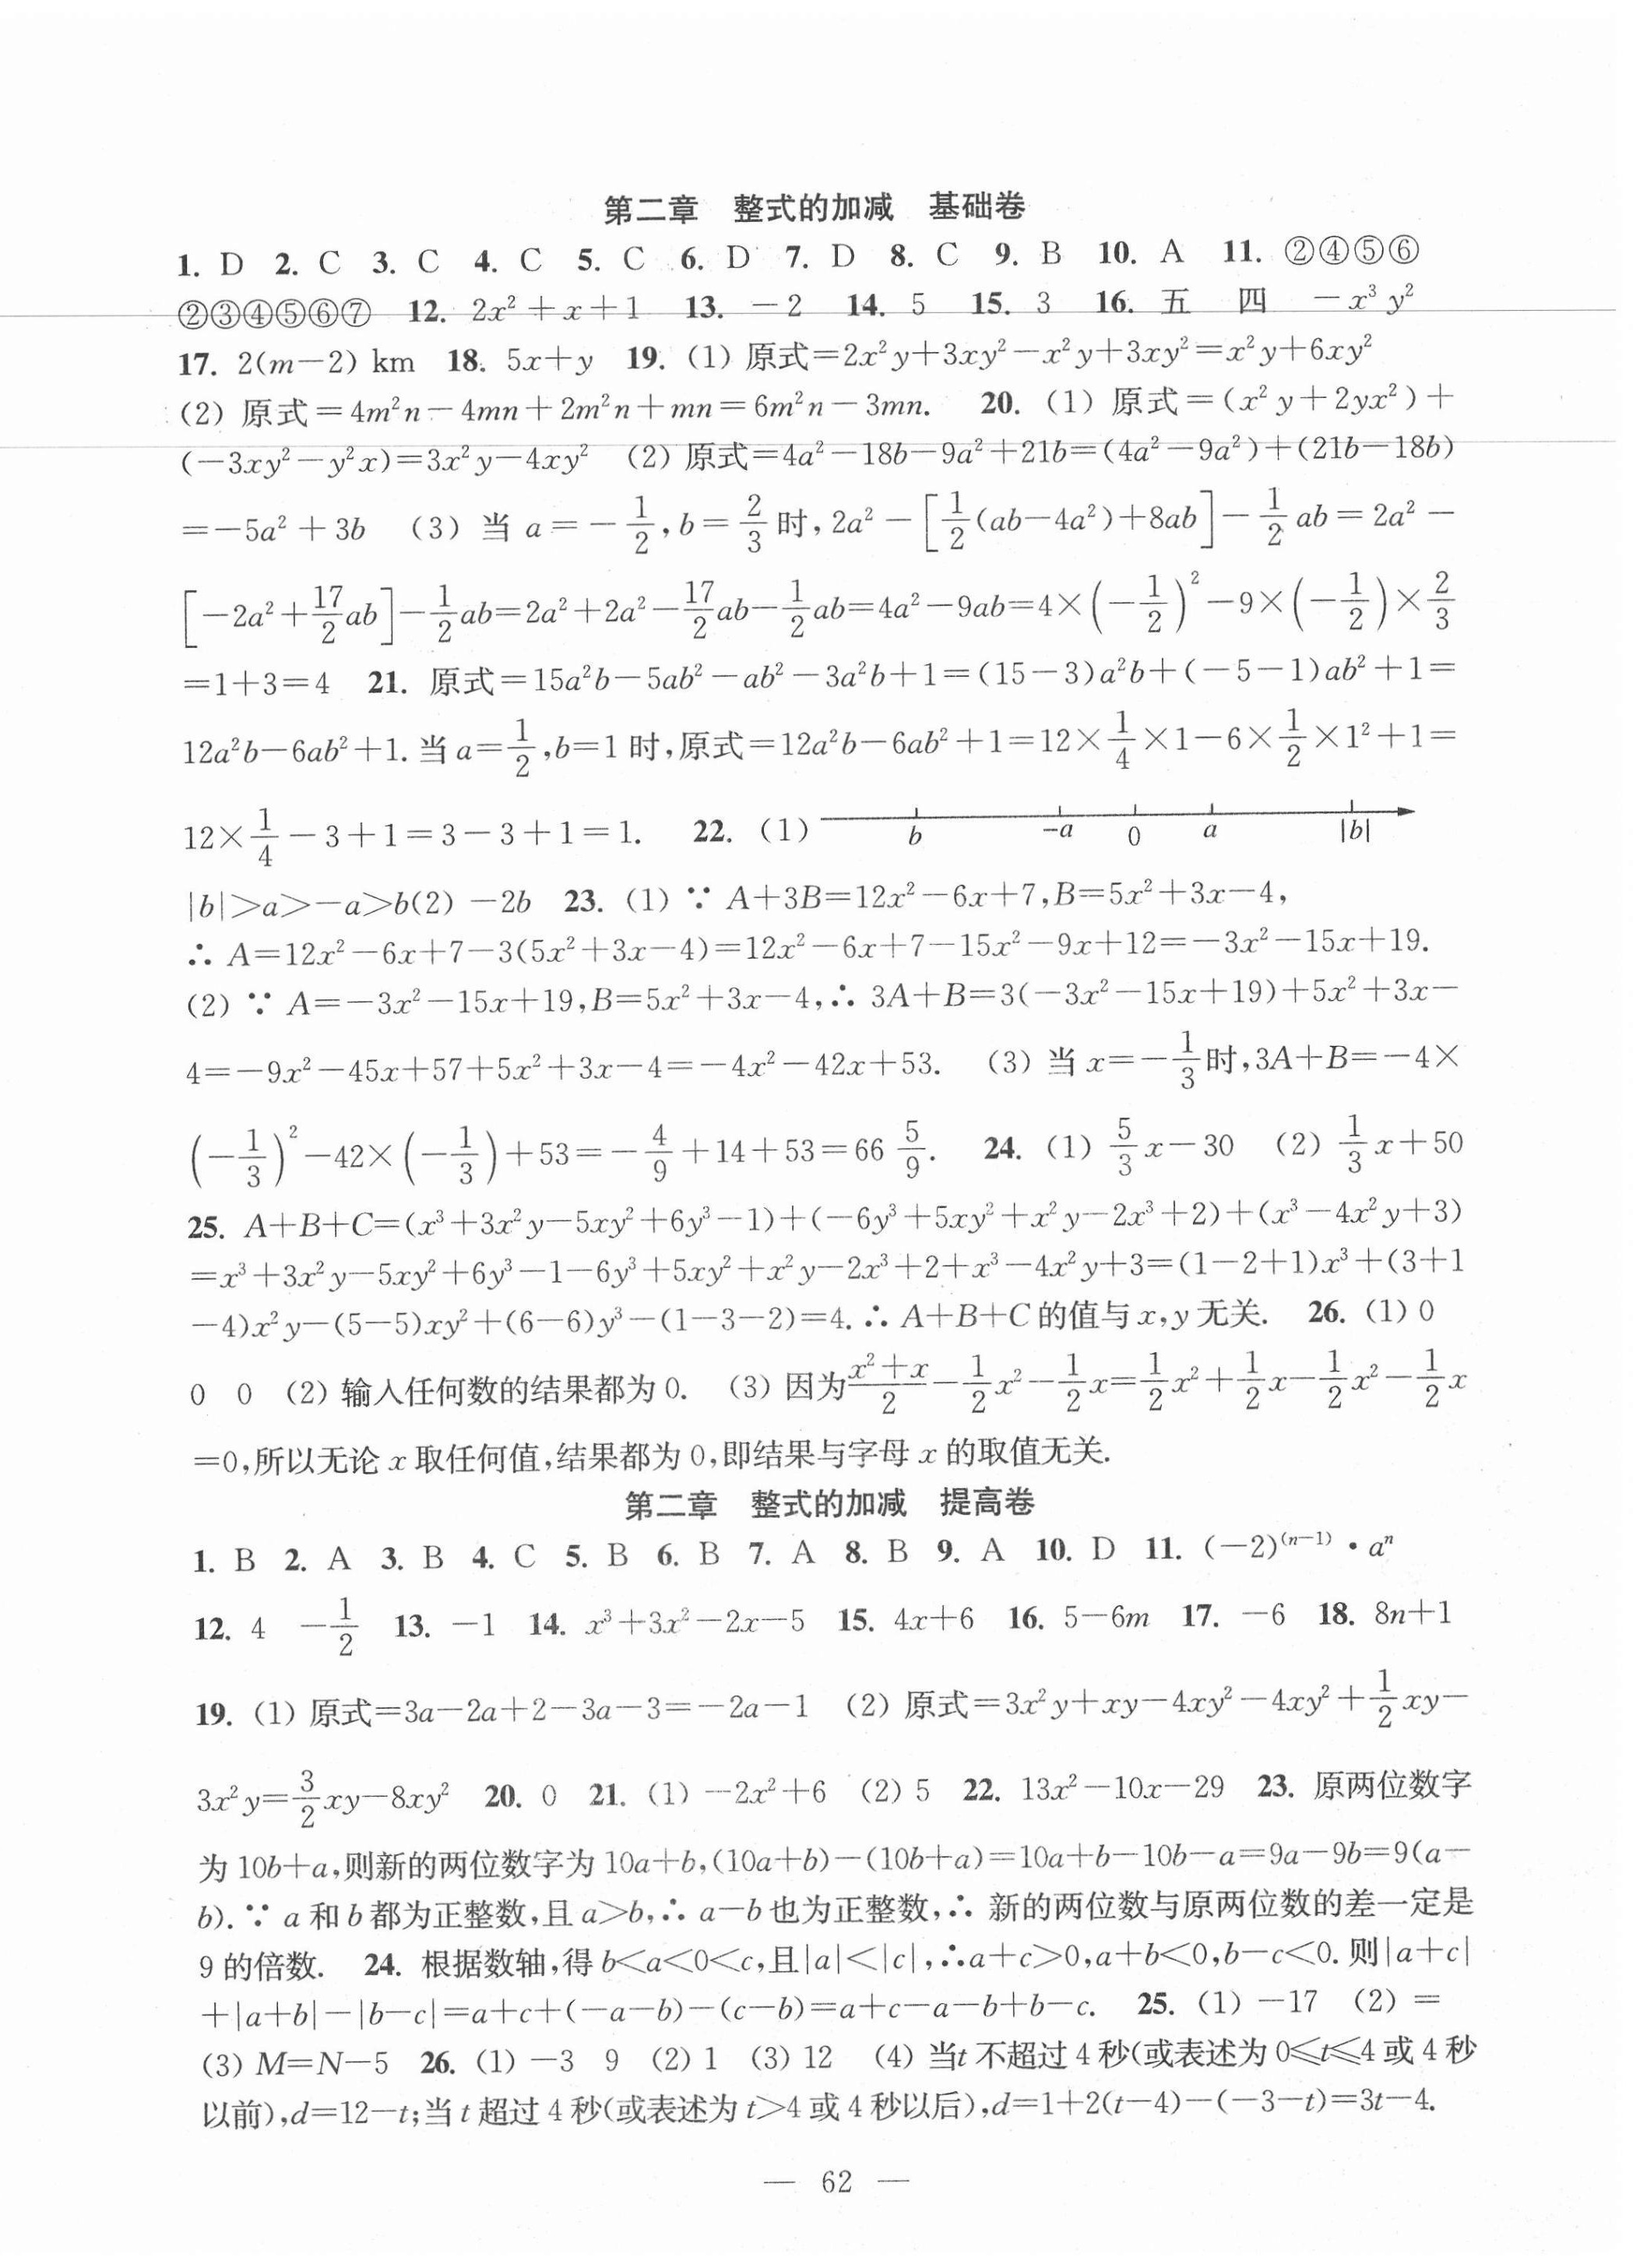 第二章　整式的加减　基础卷
1. D  2. C  3. C  4. C  5. C  6. D  7. D  8. C  9. B  10. A  11. ②④⑤⑥
②③④⑤⑥⑦  12. 2x²+x+1  13. －2  14. 5  15. 3  16. 五　四　－x³y²
17. 2(m－2) km  18. 5x＋y  19. (1) 原式＝2x²y＋3xy²－x²y＋3xy²＝x²y＋6xy²
(2) 原式＝4m²n－4mn＋2m²n＋mn＝6m²n－3mn.  20. (1) 原式＝(x²y＋2yx²)＋
(－3xy²－y²x)＝3x²y－4xy²  (2) 原式＝4a²－18b－9a²＋21b＝(4a²－9a²)＋(21b－18b)
＝－5a²＋3b  (3) 当 a＝－1/2,b＝2/3 时,2a²－[1/2(ab－4a²)＋8ab]－1/2 ab＝2a²－
[－2a²＋17/2 ab]－1/2 ab＝2a²＋2a²－17/2 ab－1/2 ab＝4a²－9ab＝4×(－1/2)²－9×(－1/2)×2/3
＝1＋3＝4  21. 原式＝15a²b－5ab²－ab²－3a²b＋1＝(15－3)a²b＋(－5－1)ab²＋1＝
12a²b－6ab²＋1. 当 a＝1/2,b＝1 时,原式＝12a²b－6ab²＋1＝12×1/4×1－6×1/2×1²＋1＝
12×1/4－3＋1＝3－3＋1＝1.  22. (1) b  －a  0  a  |b|
|b|＞a＞－a＞b(2) －2b  23. (1) ∵ A＋3B＝12x²－6x＋7,B＝5x²＋3x－4,
∴ A＝12x²－6x＋7－3(5x²＋3x－4)＝12x²－6x＋7－15x²－9x＋12＝－3x²－15x＋19.
(2) ∵ A＝－3x²－15x＋19,B＝5x²＋3x－4,∴ 3A＋B＝3(－3x²－15x＋19)＋5x²＋3x－
4＝－9x²－45x＋57＋5x²＋3x－4＝－4x²－42x＋53.  (3) 当 x＝－1/3 时,3A＋B＝－4×
(－1/3)²－42×(－1/3)＋53＝－4/9＋14＋53＝66 5/9.  24. (1) 5/3 x－30  (2) 1/3 x＋50
25. A＋B＋C＝(x³＋3x²y－5xy²＋6y³－1)＋(－6y³＋5xy²＋x²y－2x³＋2)＋(x³－4x²y＋3)
＝x³＋3x²y－5xy²＋6y³－1－6y³＋5xy²＋x²y－2x³＋2＋x³－4x²y＋3＝(1－2＋1)x³＋(3＋1
－4)x²y－(5－5)xy²＋(6－6)y³－(1－3－2)＝4. ∴ A＋B＋C 的值与 x,y 无关.  26. (1) 0
0  0  (2) 输入任何数的结果都为 0.  (3) 因为(x²＋x)/2－1/2 x²－1/2 x＝1/2 x²＋1/2 x－1/2 x²－1/2 x
＝0,所以无论 x 取任何值,结果都为 0,即结果与字母 x 的取值无关.
第二章　整式的加减　提高卷
1. B  2. A  3. B  4. C  5. B  6. B  7. A  8. B  9. A  10. D  11. (－2)⁽ⁿ⁻¹⁾・aⁿ
12. 4  －1/2  13. －1  14. x³＋3x²－2x－5  15. 4x＋6  16. 5－6m  17. －6  18. 8n＋1
19. (1) 原式＝3a－2a＋2－3a－3＝－2a－1  (2) 原式＝3x²y＋xy－4xy²－4xy²＋1/2 xy－
3x²y＝3/2 xy－8xy²  20. 0  21. (1) －2x²＋6  (2) 5  22. 13x²－10x－29  23. 原两位数字
为 10b＋a,则新的两位数字为 10a＋b,(10a＋b)－(10b＋a)＝10a＋b－10b－a＝9a－9b＝9(a－
b). ∵ a 和 b 都为正整数,且 a＞b,∴ a－b 也为正整数,∴ 新的两位数与原两位数的差一定是
9 的倍数.  24. 根据数轴,得 b＜a＜0＜c,且|a|＜|c|,∴a＋c＞0,a＋b＜0,b－c＜0. 则|a＋c|
＋|a＋b|－|b－c|＝a＋c＋(－a－b)－(c－b)＝a＋c－a－b＋b－c.  25. (1) －17  (2) ＝
(3) M＝N－5  26. (1) －3  9  (2) 1  (3) 12  (4) 当t 不超过 4 秒(或表述为 0≤t≤4 或 4 秒
以前),d＝12－t;当 t 超过 4 秒(或表述为 t＞4 或 4 秒以后),d＝1＋2(t－4)－(－3－t)＝3t－4.
— 62 —